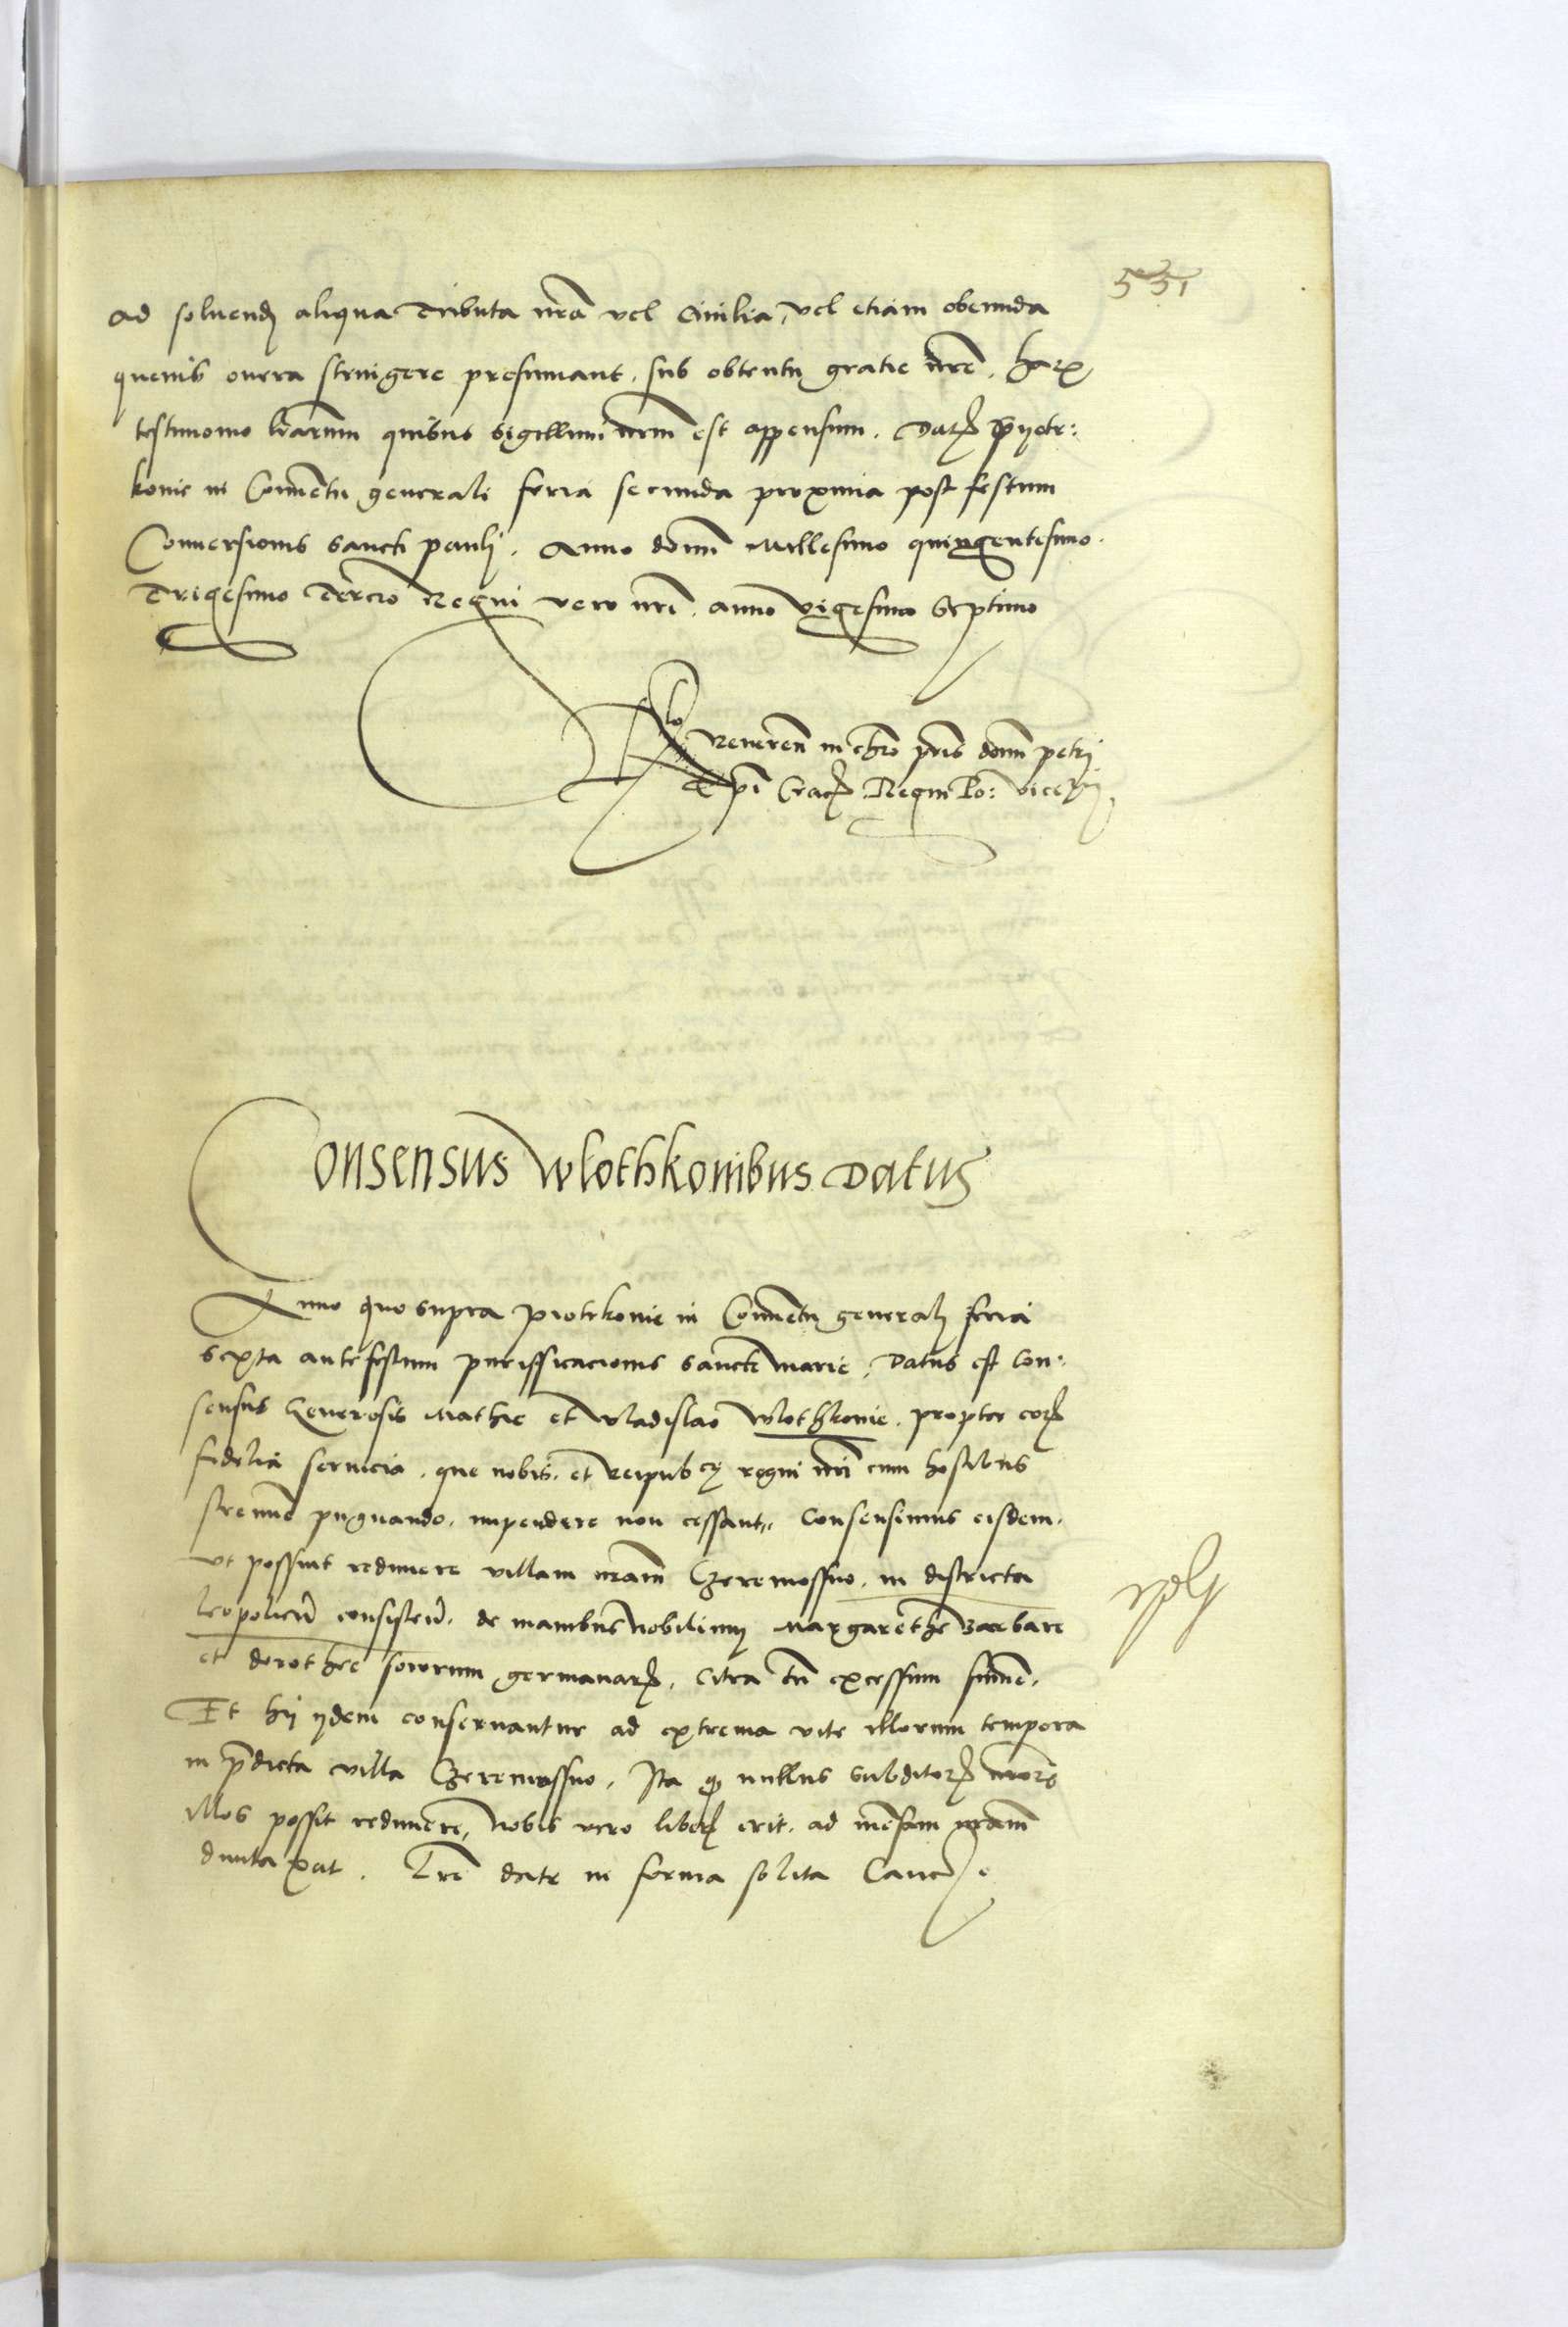 551
ad soluend aliqua Tributa nrã vel Ciuilia, vel etiam obeunda
queuis onera stringere presumant. sub obtentu gratie nrẽ. Harꝝ
testimonio lrarum quibus Sigillum nrm est appensum. Datꝝ pyotr:
konie in Conuentu generali feria secunda proxima post festum
Conuersionis sancti pauli. Anno domi Millesimo quingentesimo.
Trigesimo Tercio Regni vero nri. anno vigesimo Septimo
Rlo Reueren in chro pris domi petri
Epi Cracꝝ Regni Po: vice
Consensus Wlothkonibus Datus
Anno quo supra piotrkonie in Conuentu generali feria
sexta ante festum purifficacionis sancte Marie, Datus est Con:
sensus Generosis Mathie et Vladislao Wlothkonie. propter eorꝝ
fidelia seruicia. que nobis. et reipub. regni nri cum hostibus
strenue pugnando. impendere non cessant. Consensimus eisdem.
vt possint redimere villam nram Czeremossno. in districtu
leopolien consisten. de manibus Nobilium Margarethe Barbare
et dorothee sororum germanarꝝ. citra tn excessum summe.
Et hij ijdem conseruantur ad extrema vite illorum tempora
in pdicta villa Czeremossno. Ita ꝙ nullus subditorꝝ nrorꝝ
illos possit redimere, nobis vero liberꝝ erit. ad mensam nram
duntaxat. Lre date in forma solita Canc